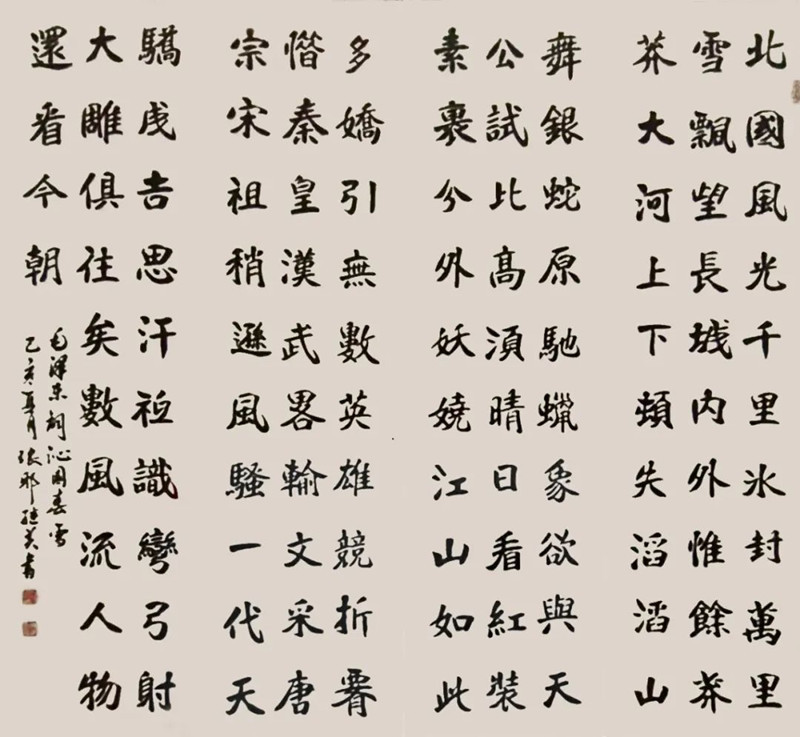 北國風光千里氷封萬里
雪飄望長城內外惟餘莽
莽大河上下頓失滔滔山
舞銀蛇原馳蠟象欲與天
公試比高須晴日看紅裝
素裹分外妖嬈江山如此
多嬌引無數英雄競折
惜秦皇漢武畧輸文采唐
宗宋祖稍遜風騷一代天
驕成吉思汗祗識彎弓射
大雕俱往矣數風流人物
還看今朝
毛澤東詞沁園春雪
乙亥夏月張